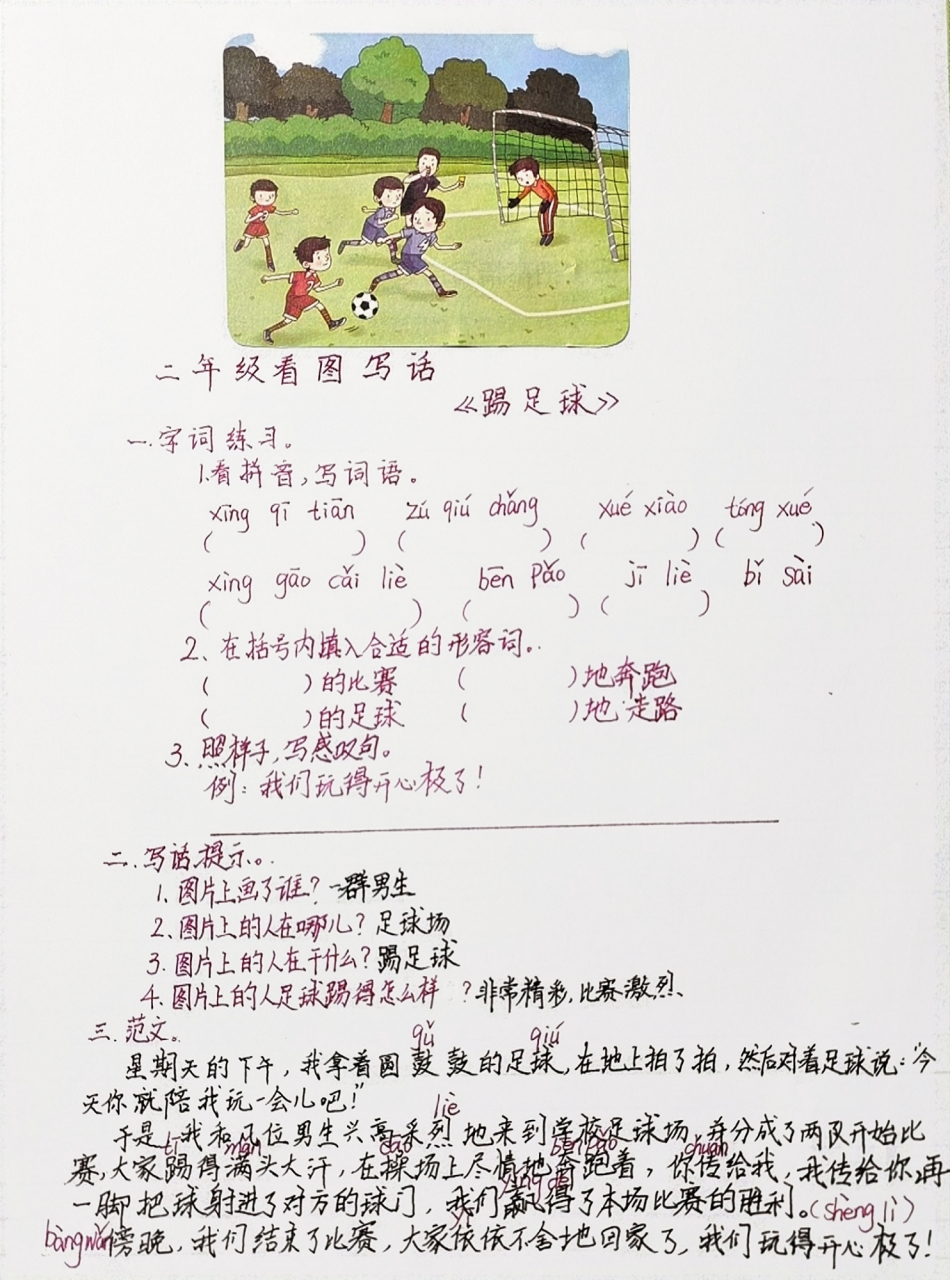 二年级看图写话
《踢足球》
一.字词练习。
1.看拼音,写词语。
xīng qī tiān  zú qiú chǎng  xué xiào  tóng xué
(      ) (      ) (      ) (      )
xìng gāo cǎi liè  bēn pǎo  jī liè  bǐ sài
(      ) (      ) (      )
2、在括号内填入合适的形容词。
(      )的比赛 (      )地奔跑
(      )的足球 (      )地走路
3、照样子,写感叹句。
例:我们玩得开心极了!
二.写话提示。
1.图片上画了谁?一群男生
2.图片上的人在哪儿?足球场
3.图片上的人在干什么?踢足球
4.图片上的人足球踢得怎么样 ?非常精彩,比赛激烈、
三.范文。
gǔ qiú
星期天的下午,我拿着圆鼓鼓的足球,在地上拍了拍,然后对着足球说:“今
天你就陪我玩一会儿吧!”
liè
于是,我和几位男生兴高采烈地来到学校足球场,并分成了两队开始比
tī mǎn cāo bēn pǎo chuán
赛,大家踢得满头大汗,在操场上尽情地奔跑着,你传给我,我传给你,再
yíng dé
一脚把球射进了对方的球门,我们赢得了本场比赛的胜利。(shèng lì)
bàng wǎn傍晚,我们结束了比赛,大家依依不舍地回家了,我们玩得开心极了!